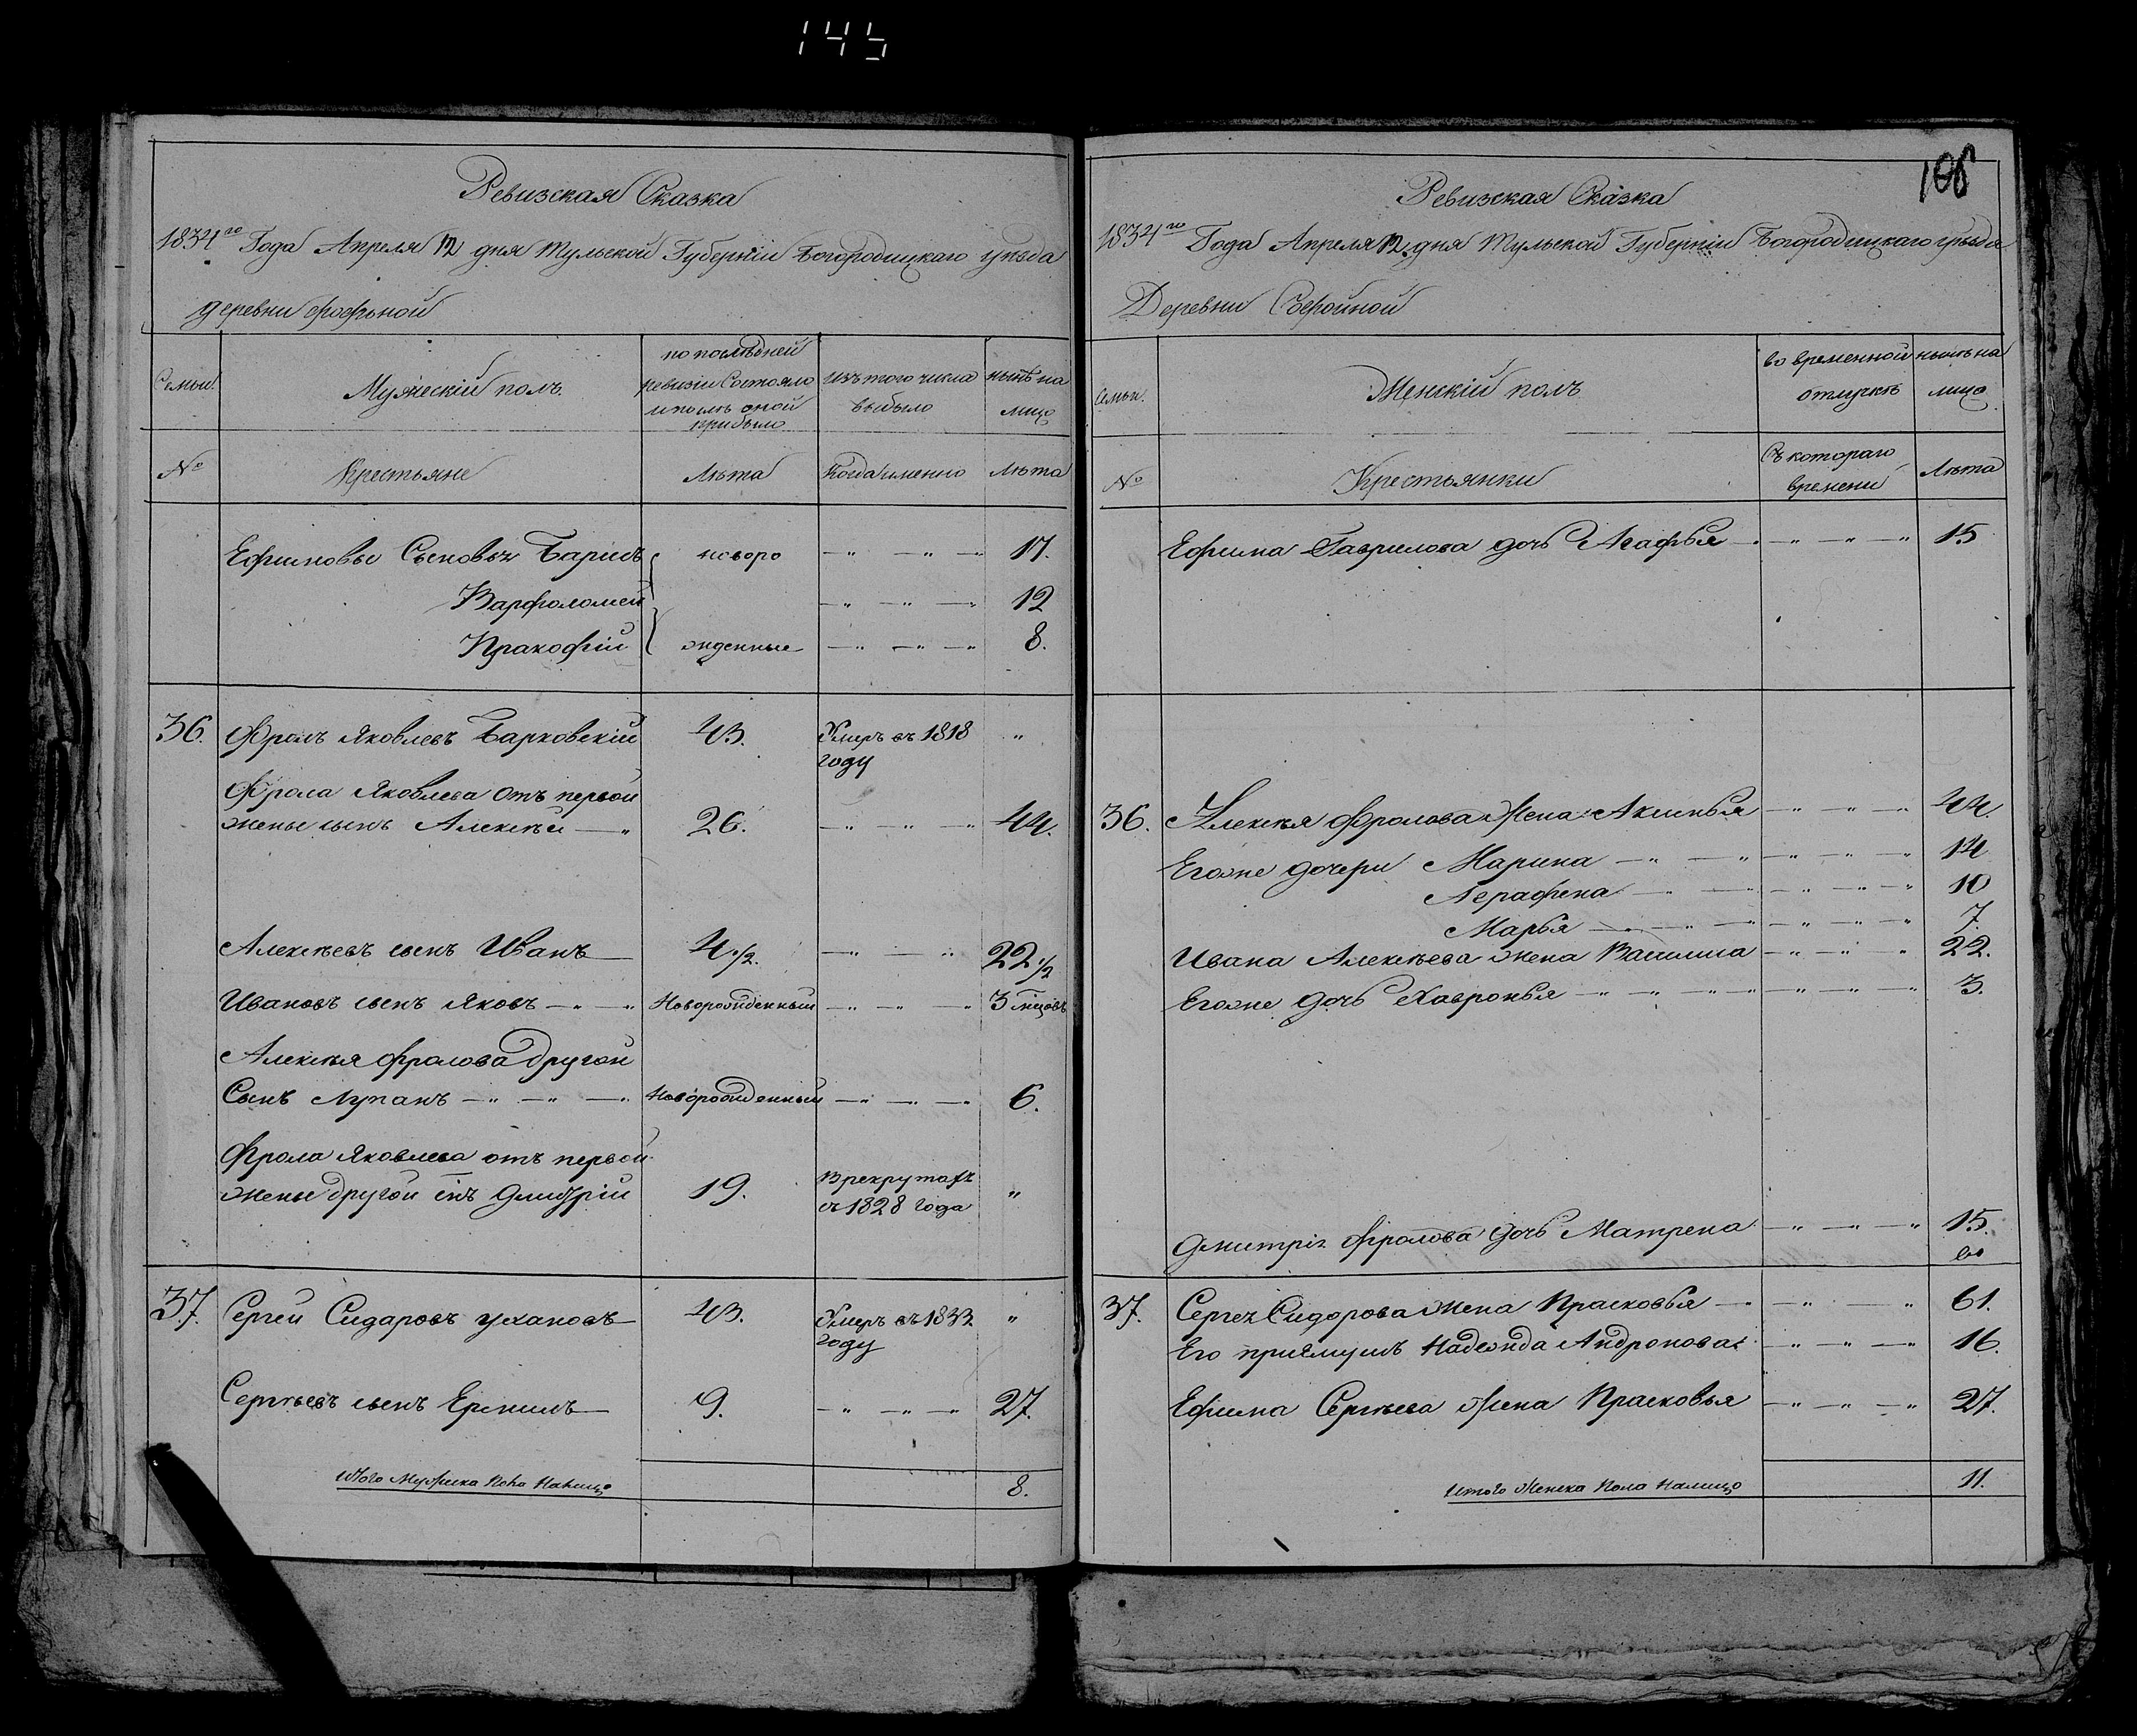 145
Ревизская Сказка
1834го Года Апреля 12 дня Тульской Губерніи Богородицкаго уѣзда
деревни
Семьи.
Мужескій полъ.
по послѣдней ревизіи Состояло и послѣ оной прибыло
изъ того числа выбыло
нынѣ на лицо
№
Крестьяне
Лѣта
Когда именно
Лѣта
Ефимовы Сыновья новоро —„ —„ — 17.
Варфоломей —„ —„ — 12
Пракофій жденные —„ —„ — 8.
36. Фролъ Яковлевъ Барковскій 43. Умеръ въ 1818 „
году
Фрола Яковлева отъ первой
жены сынъ Алексѣй —„ 26. —„ —„ — 44.
Алексѣевъ сынъ Иванъ — 4 1/2. —„ —„ 22 1/2
Ивановъ сынъ Яковъ —„ —„ Новорожденный —„ —„ —„ 3 мѣцовъ
Алексѣя Фролова другой
Сынъ Лупанъ —„ —„ —„ Новорожденный —„ —„ —„ 6.
Фрола Яковлева отъ первой
жены другой снъ Дмитрій 19. В рекрутахъ
съ 1828 года „
37. Сергей Сидаровъ Ухановъ 43. Умеръ въ 1833 „
году
Сергѣевъ сынъ — 9. —„ —„ —„ 27.
Итого Мужска Пола Налицо 8.
108
Ревизская Сказка
1834го Года Апреля 12 дня Тульской Губерніи Богородицкаго уѣзда
Деревни
Семьи.
Женскій полъ
во временной отлучкѣ
нынѣ на лицо
№
Крестьянки
Съ котораго времени
Лѣта
Ефима Гаврилова дочь Агафья —„ —„ —„ 15
36. Алексѣя Фролова Жена Аксинья —„ —„ —„ 44.
Егоже дочери Марина —„ —„ —„ —„ —„ 14
Аграфена —„ —„ —„ —„ 10
Марья —„ —„ —„ —„ —„ 7.
Ивана Алексѣева жена Василиса —„ —„ —„ 22.
Егоже дочь Хавронья —„ —„ —„ —„ —„ —„ 3.
Дмитрія Фролова дочь Матрена —„ —„ —„ 15.
37. Сергея Сидорова жена Прасковья —„ —„ —„ 61.
Его Надежда Андронова —„ —„ —„ 16.
Ефима Сергѣева Жена Прасковья —„ —„ —„ 27.
Итого Женска Пола Налицо 11.